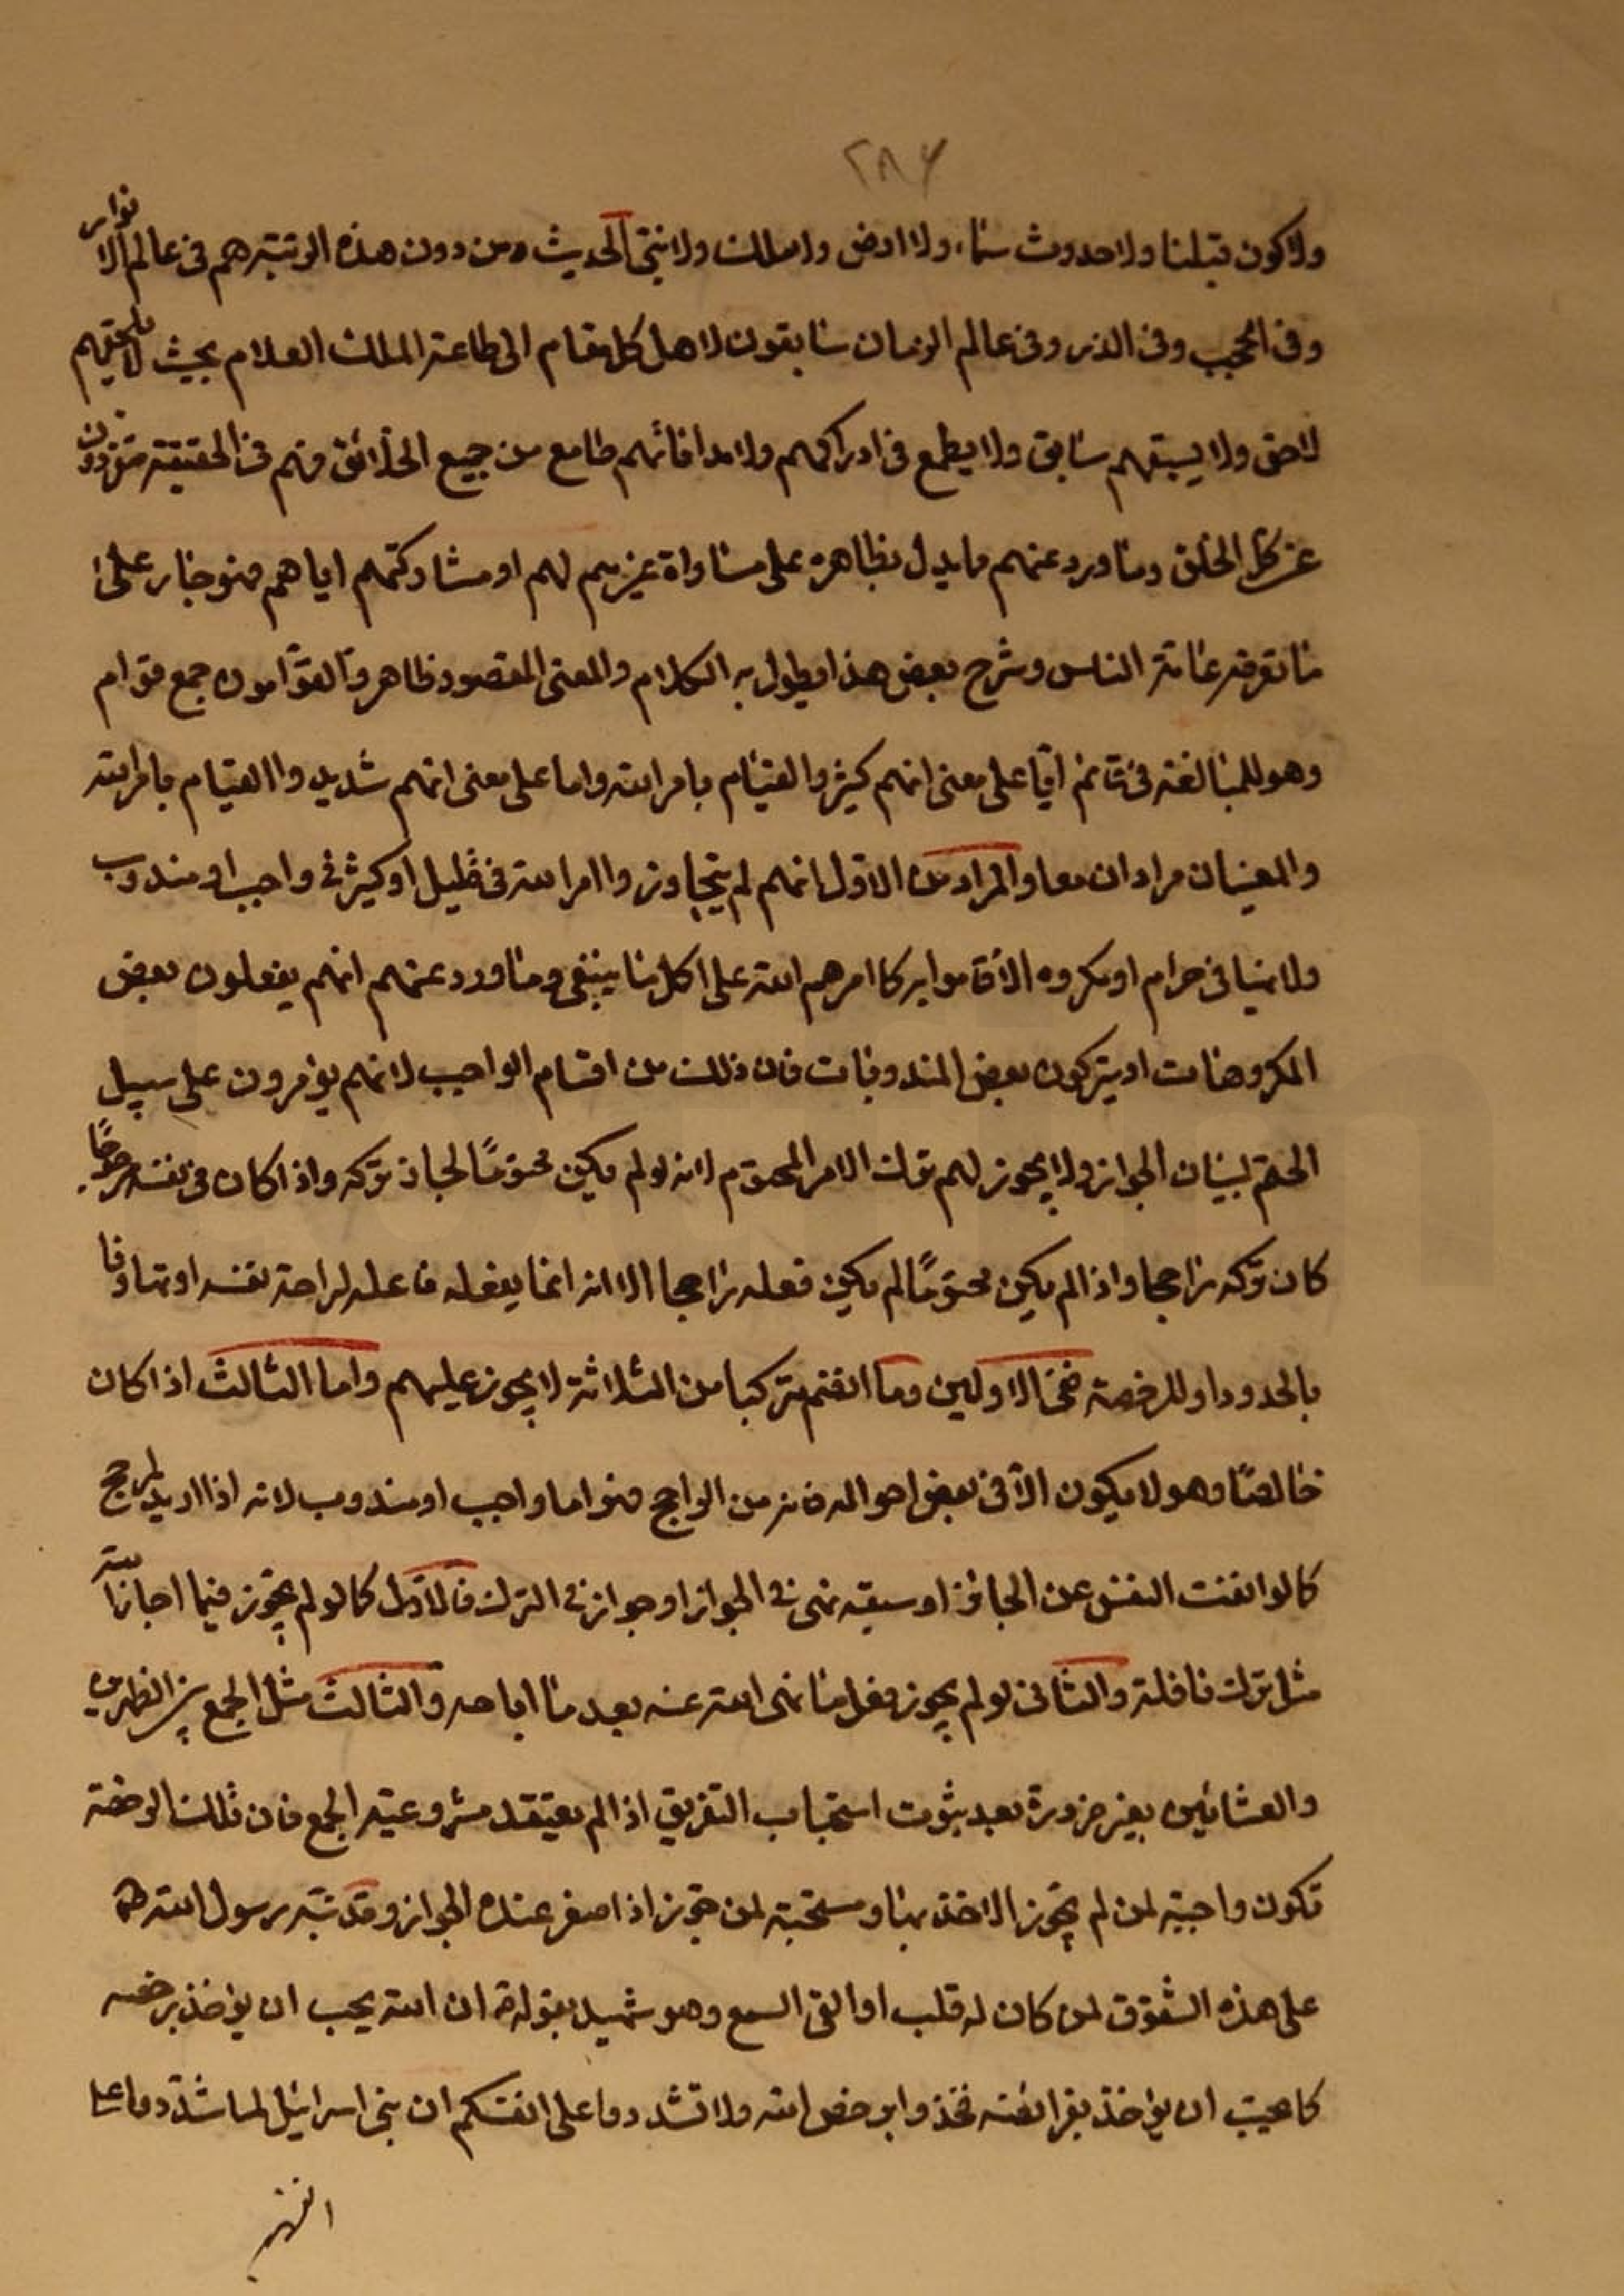 ٢٨٦
ولا كون قبلنا ولا حدوث سماء ولا ارض ولا ملك ولا نبى الحديث ومن دون هذه الرتبة هم فى عالم الانوار
وفى الحجب وفى الذر وفى عالم الزمان سابقون لاهل كل مقام الى طاعة الملك العلام بحيث لا يلحقهم
لاحق ولا يسبقهم سابق ولا يطمع فى ادراكهم ولا مدافاتهم طامع من جميع الخلائق فهم فى الحقيقة متفردون
عن كل الخلق وما ورد عنهم ما يدل بظاهره على مساواة غيرهم لهم او مشاركتهم اياهم فهو جار على
ما تعرفه عامة الناس وشرح بعض هذا يطول به الكلام والمعنى المقصود ظاهر والقوّامون جمع قوام
وهو للمبالغة فى قائم امّا على معنى انهم كثيروا القيام بامر الله واما على معنى انهم شديدوا القيام بامر الله
والمعنيان مرادان معا والمراد من الاول انهم لم يتجاوزوا امر الله فى قليل او كثير فى واجب او مندوب
ولا نهيا فى حرام او مكروه الّا قاموا به كما امرهم الله على اكل ما ينبغى وما ورد عنهم انهم يفعلون بعض
المكروهات او يتركون بعض المندوبات فان ذلك من اقسام الواجب لانهم يؤمرون على سبيل
الحتم لبيان الجواز ولا يجوز لهم ترك الامر المحتوم لانه لو لم يكن محتومًا لجاز تركه واذا كان فى نفسه مرجوحًا
كان تركه راجحا واذا لم يكن محتومًا لم يكن فعله راجحا الا انه انما يفعله فاعله لراحة نفسه او تهاونا
بالحدود او للرخصة فغى الاولين وما انضم مركبا من الثلاثة لا يجوز عليهم واما الثالث اذا كان
خالصًا وهو لا يكون الّا فى بعض احواله فانه من الراجح فهو اما واجب او مندوب لانه اذا اريد لمرجح
كما لو انفت النفس عن الجائز او سبقه نهى فى الجواز او جواز فى الترك فالاوّل كما لو لم يجوّز فيما اجازه الله
مثل ترك نافلة والثانى لو لم يجوز فعل ما نهى الله عنه بعد ما اباحه والثالث مثل الجمع بين الظهرين
والعشائين بغير ضرورة بعد ثبوت استحباب التفريق اذا لم يعتقد مشروعية الجمع فان تلك الرخصة
تكون واجبة لمن لم يجوّز الاخذ بها ومستحبة لمن جوّز اذا اصغر عنده الجواز وقد نبّه رسول الله ص
على هذه الشقوق لمن كان له قلب او القى السمع وهو شهيد بقوله ص ان الله يحب ان يؤخذ برخصه
كما يحب ان يؤخذ بفرائضه فخذوا برخص الله ولا تشددوا على انفسكم ان بنى اسرائيل لما شددوا على
انفسهم